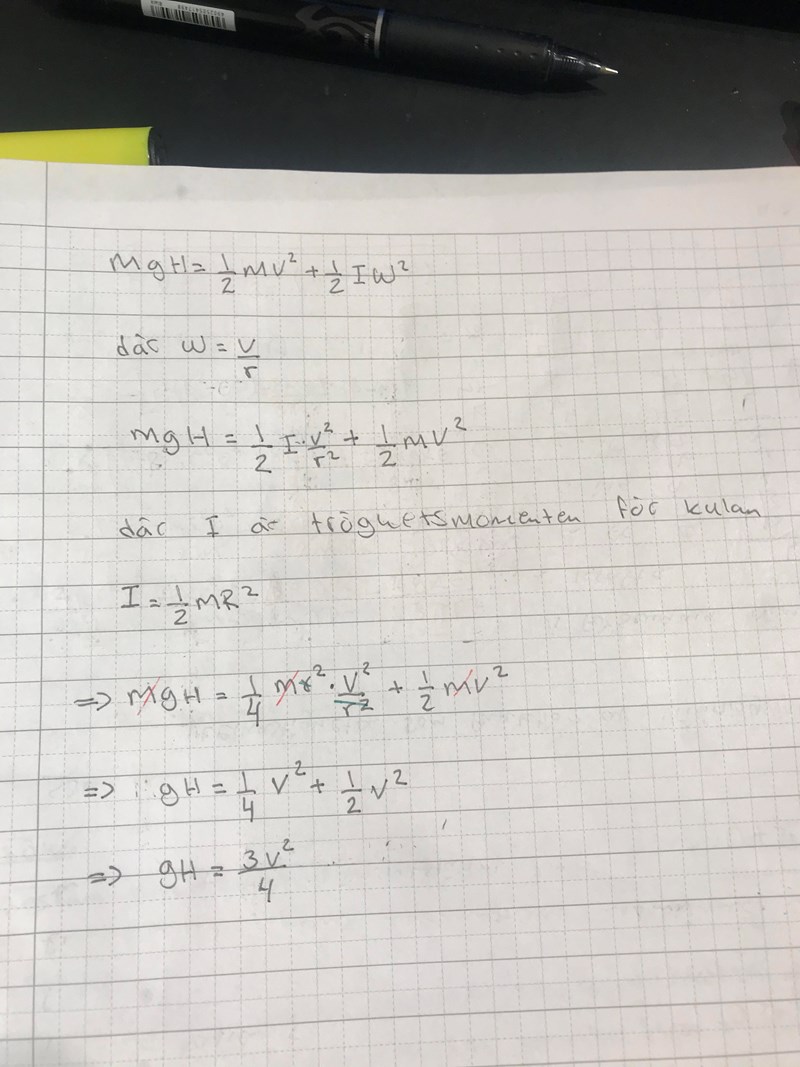 mgH = 1/2 mv² + 1/2 Iω²
där ω = v/r
mgH = 1/2 I · v²/r² + 1/2 mv²
där I är tröghetsmomenten för kulan
I = 1/2 MR²
=> mgH = 1/4 mr² · v²/r² + 1/2 mv²
=> gH = 1/4 v² + 1/2 v²
=> gH = 3v²/4